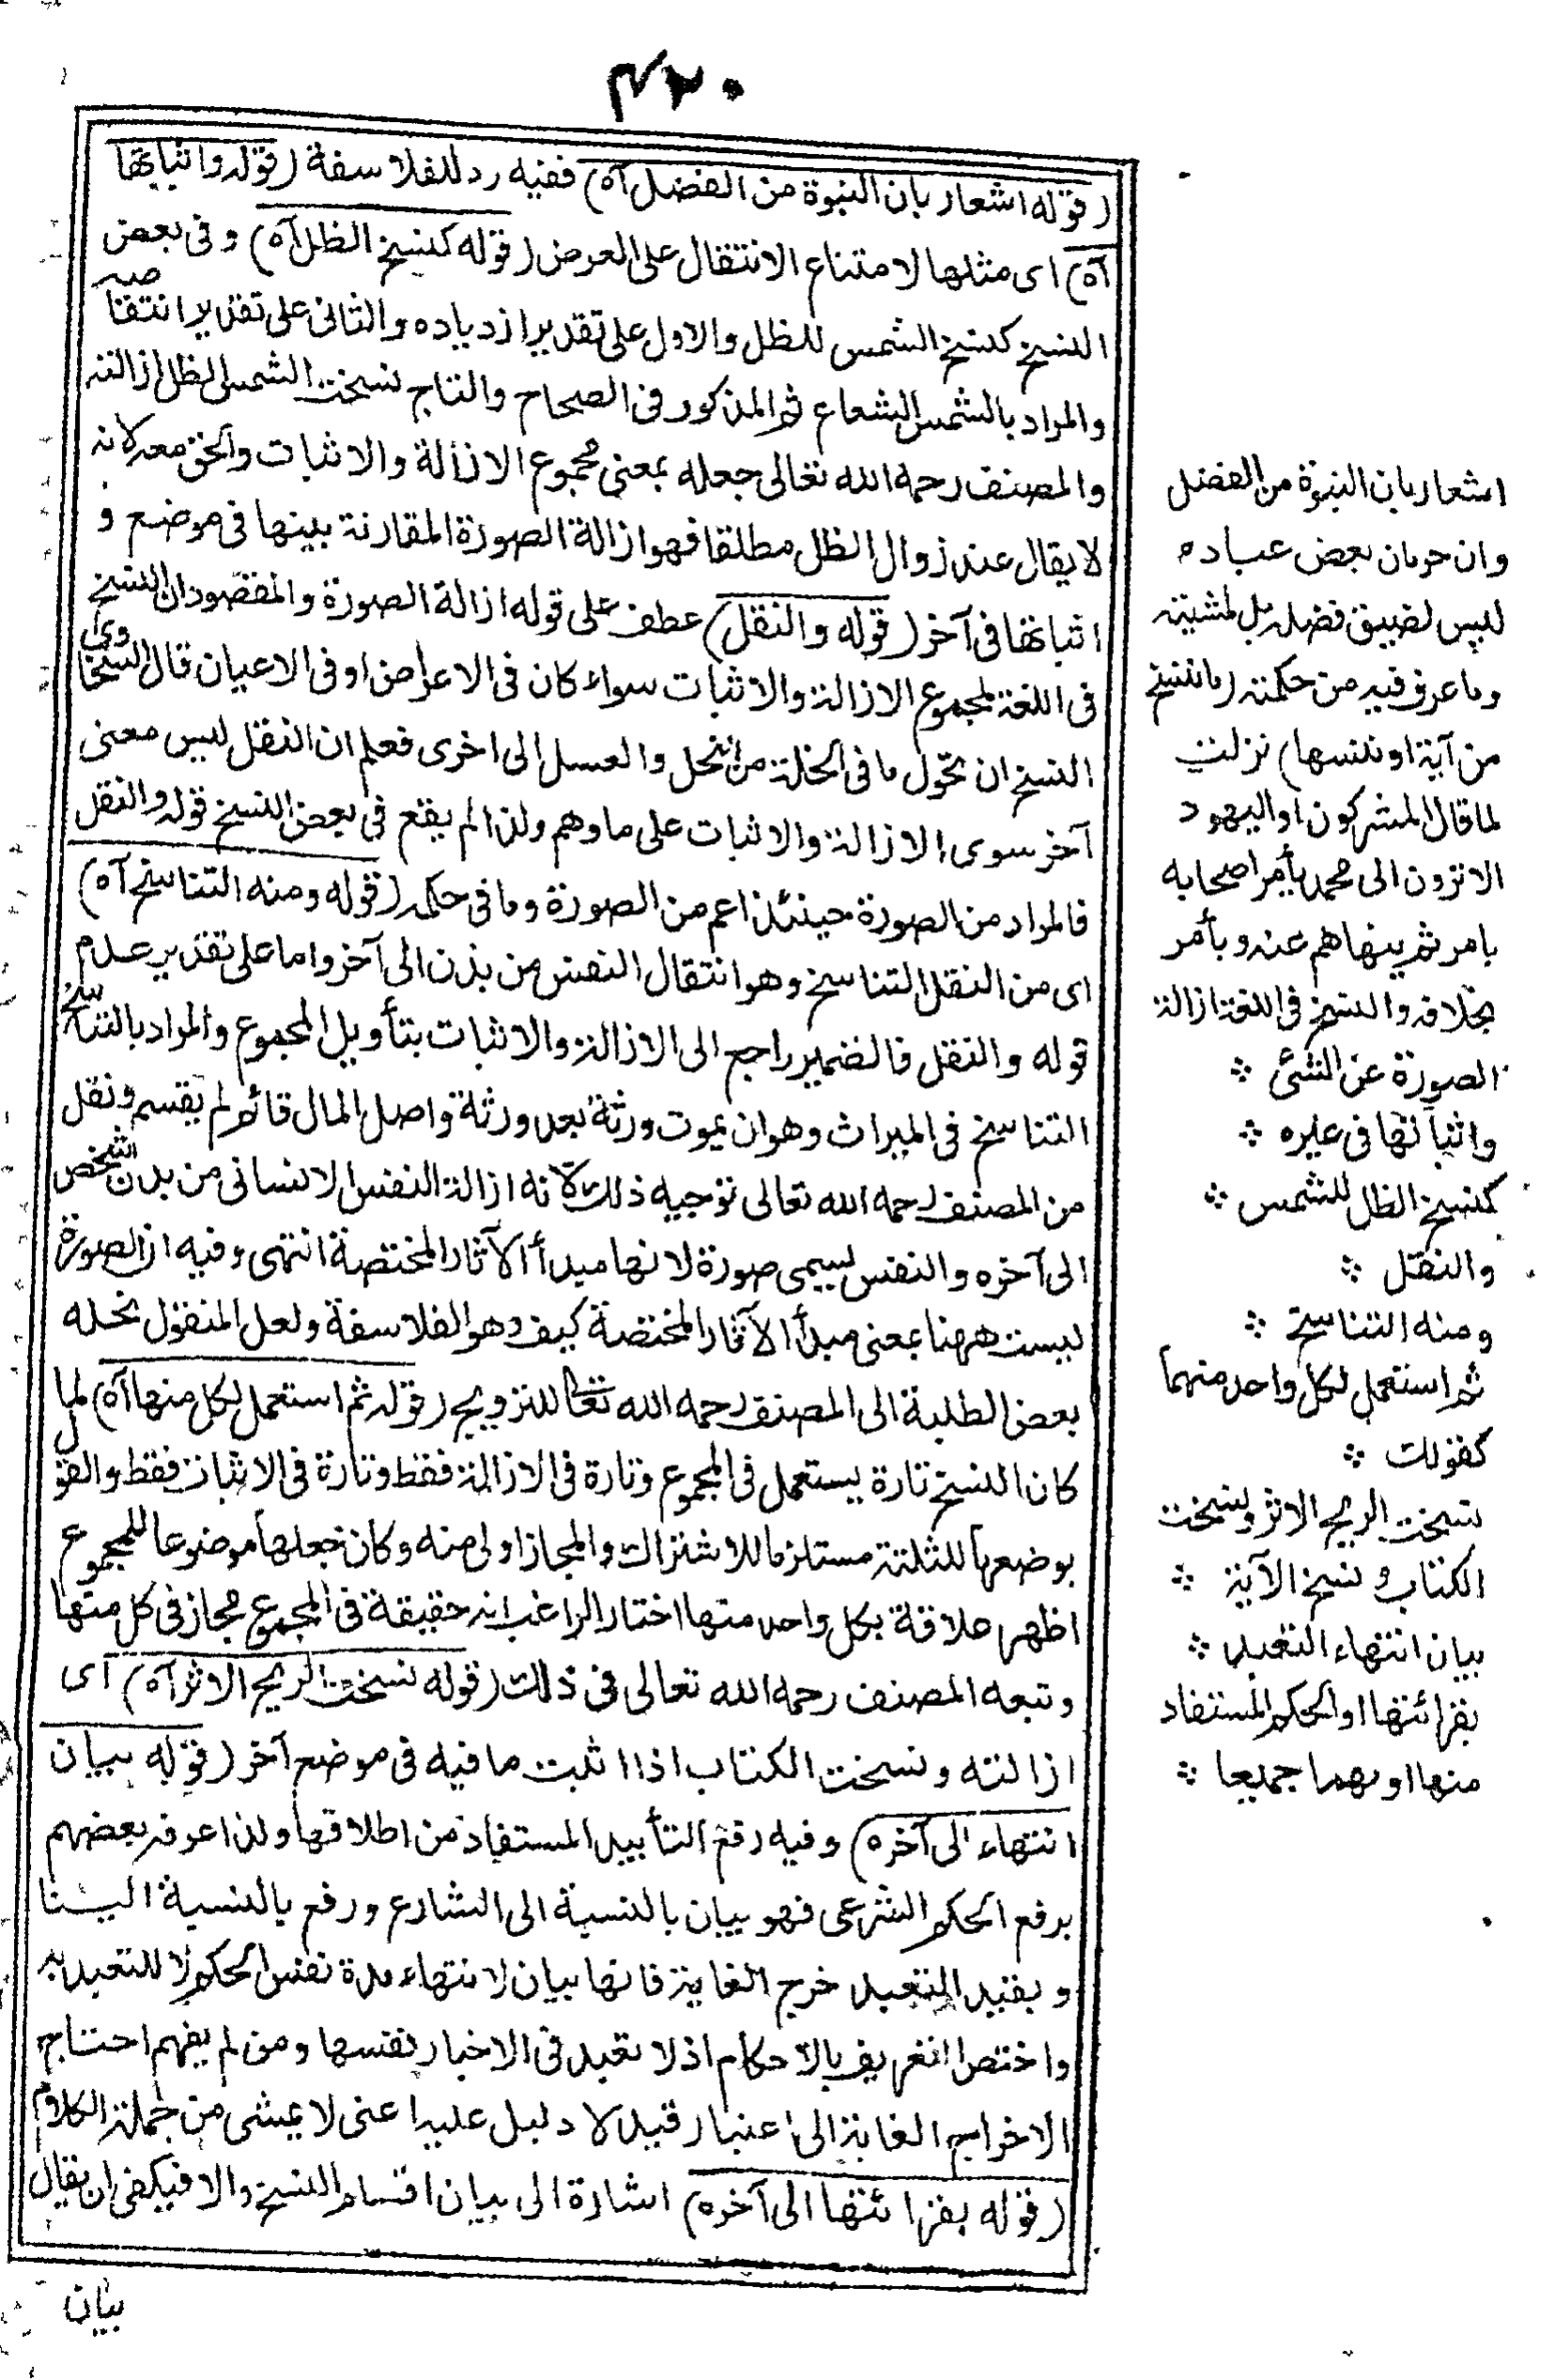 ٤٣٠
(قوله اشعار بان النبوة من الفضل آه) ففيه رد للفلاسفة (قوله واثباتها
آه) اى مثلها لامتناع الانتقال على العرض (قوله كنسخ الظل آه) وفى بعض
النسخ كنسخ الشمس للظل والاول على تقدير ازدياده والثانى على تقدير انتقاصه
والمراد بالشمس الشعاع ثم المذكور فى الصحاح والتاج نسخت الشمس الظل ازالته
والمصنف رحمه الله تعالى جعله بمعنى مجموع الازالة والاثبات والحق معه لانه
لا يقال عند زوال الظل مطلقا فهو ازالة الصورة المقارنة بينها فى موضع و
اثباتها فى آخر (قوله والنقل) عطف على قوله ازالة الصورة والمقصود ان النسخ
فى اللغة لمجموع الازالة والاثبات سواء كان فى الاعراض او فى الاعيان قال السخاوى
النسخ ان تحول ما فى الخلة من النحل والعسل الى اخرى فعلم ان النقل ليس معنى
آخر سوى الازالة والاثبات على ما وهم ولذا لم يقع فى بعض النسخ قوله والنقل
فالمراد من الصورة حينئذ اعم من الصورة وما فى حكمه (قوله ومنه التناسخ آه)
اى من النقل التناسخ وهو انتقال النفس من بدن الى آخر واما على تقدير عدم
قوله والنقل فالضمير راجع الى الازالة والاثبات بتأويل المجموع والمراد بالتناسخ
التناسخ فى الميراث وهو ان يموت ورثة بعد ورثة واصل المال قائم لم يقسم ونقل
من المصنف رحمه الله تعالى توجيه ذلك لانه ازالة النفس الانسانى من بدن الشخص
الى آخره والنفس يسمى صورة لانها مبدأ الآثار المختصة انتهى وفيه ان الصورة
ليست ههنا بمعنى مبدأ الآثار المختصة كيف وهو الفلاسفة ولعل المنقول نحله
بعض الطلبة الى المصنف رحمه الله تعا للترويج (قوله ثم استعمل لكل منها آه) لما
كان النسخ تارة يستعمل فى المجموع وتارة فى الازالة فقط وتارة فى الاثبات فقط والقول
بوضعها للثلثة مستلزما للاشتراك والمجاز اولى منه وكان جعلها موضوعا للمجموع
اظهر علاقة بكل واحد منها اختار الراغب انه حقيقة فى المجموع مجاز فى كل منها
وتبعه المصنف رحمه الله تعالى فى ذلك (قوله نسخت الريح الاثر آه) اى
ازالته ونسخت الكتاب اذا اثبت ما فيه فى موضع آخر (قوله بيان
انتهاء الى آخره) وفيه رفع التأبيد المستفاد من اطلاقها ولذا عرفه بعضهم
برفع الحكم الشرعى فهو بيان بالنسبة الى الشارع ورفع بالنسبة الينا
وبقيد التعبد خرج الغاية فانها بيان لانتهاء مدة نفس الحكم لا للتعبد به
واختص التعريف بالاحكام اذ لا تعبد فى الاخبار نفسها ومن لم يفهم احتاج
الاخراج الغاية الى اعتبار قيد لا دليل عليه اعنى لا يمشى من جملة الكلام
(قوله بقرائتها الى آخره) اشارة الى بيان اقسام النسخ والا فيكفى ان يقال
بيان
اشعار بان النبوة من الفضل
وان حرمان بعض عباده
ليس لضيق فضله بل لمشيته
وما عرف فيه من حكمته (ما ننسخ
من آية او ننسها) نزلت
لما قال المشركون او اليهود
الا ترون الى محمد يأمر اصحابه
بامر ثم ينهاهم عنه ويأمر
بخلافه والنسخ فى اللغة ازالة
الصورة عن الشئ
واثباتها فى غيره
كنسخ الظل للشمس
والنقل
ومنه التناسخ
ثم استعمل لكل واحد منهما
كقولك
نسخت الريح الاثر ونسخت
الكتاب ونسخ الآية
بيان انتهاء التعبد
بقرائتها او الحكم المستفاد
منها او بهما جميعا